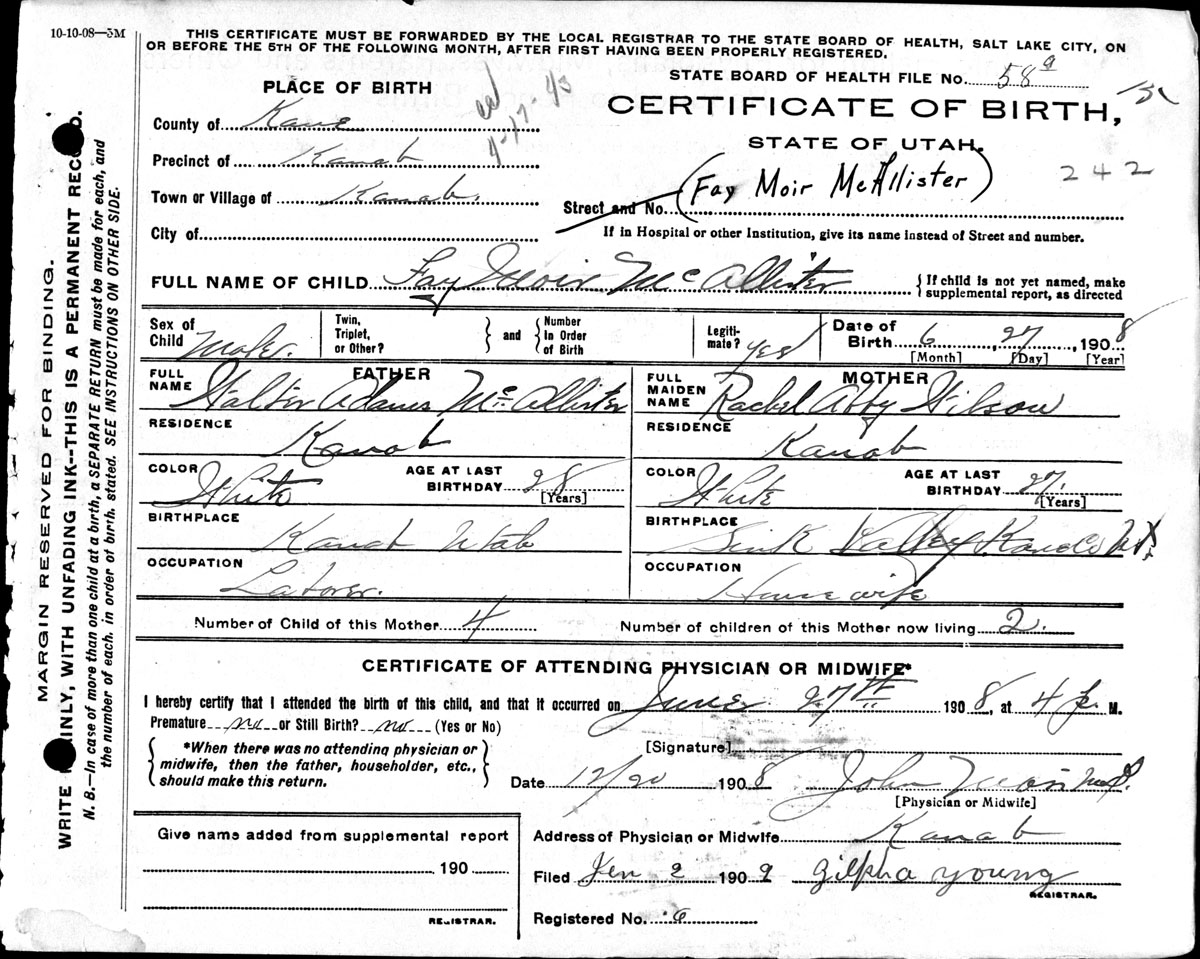 10-10-08—5M
THIS CERTIFICATE MUST BE FORWARDED BY THE LOCAL REGISTRAR TO THE STATE BOARD OF HEALTH, SALT LAKE CITY, ON
OR BEFORE THE 5TH OF THE FOLLOWING MONTH, AFTER FIRST HAVING BEEN PROPERLY REGISTERED.
STATE BOARD OF HEALTH FILE NO. 58a
PLACE OF BIRTH
4-17-43
CERTIFICATE OF BIRTH,
County of Kane
STATE OF UTAH.
Precinct of Kanab
242
(Fay Moir McAllister)
Town or Village of Kanab.
Street and No.
City of
If in Hospital or other Institution, give its name instead of Street and number.
FULL NAME OF CHILD Fay Moir McAllister { If child is not yet named, make
supplemental report, as directed
Sex of Child Male. Twin, Triplet, or Other? } and { Number In Order of Birth Legiti-mate? yes Date of Birth 6, 27, 1908
[Month] [Day] [Year]
FATHER
FULL NAME Walter Adams McAllister
RESIDENCE
Kanab
COLOR White AGE AT LAST BIRTHDAY 28
[Years]
BIRTHPLACE
Kanab Utah
OCCUPATION
Laborer.
MOTHER
FULL MAIDEN NAME Rachel Abby Wilson
RESIDENCE
Kanab
COLOR White AGE AT LAST BIRTHDAY 27.
[Years]
BIRTHPLACE
Sink Valley Kane Co Ut
OCCUPATION
Housewife
Number of Child of this Mother 4 Number of children of this Mother now living 2.
CERTIFICATE OF ATTENDING PHYSICIAN OR MIDWIFE*
I hereby certify that I attended the birth of this child, and that it occurred on June 27th 1908, at 4 p. M.
Premature no or Still Birth? no (Yes or No)
{ *When there was no attending physician or
midwife, then the father, householder, etc.,
should make this return. }
[Signature]
Date 12/20 1908 John Moir M.D.
[Physician or Midwife]
Give name added from supplemental report
190
REGISTRAR.
Address of Physician or Midwife Kanab
Filed Jen 2 1909 Zilpha Young
REGISTRAR.
Registered No. 6
MARGIN RESERVED FOR BINDING.
WRITE INLY, WITH UNFADING INK--THIS IS A PERMANENT RECO D.
N. B.—In case of more than one child at a birth, a SEPARATE RETURN must be made for each, and
the number of each, in order of birth, stated. SEE INSTRUCTIONS ON OTHER SIDE.